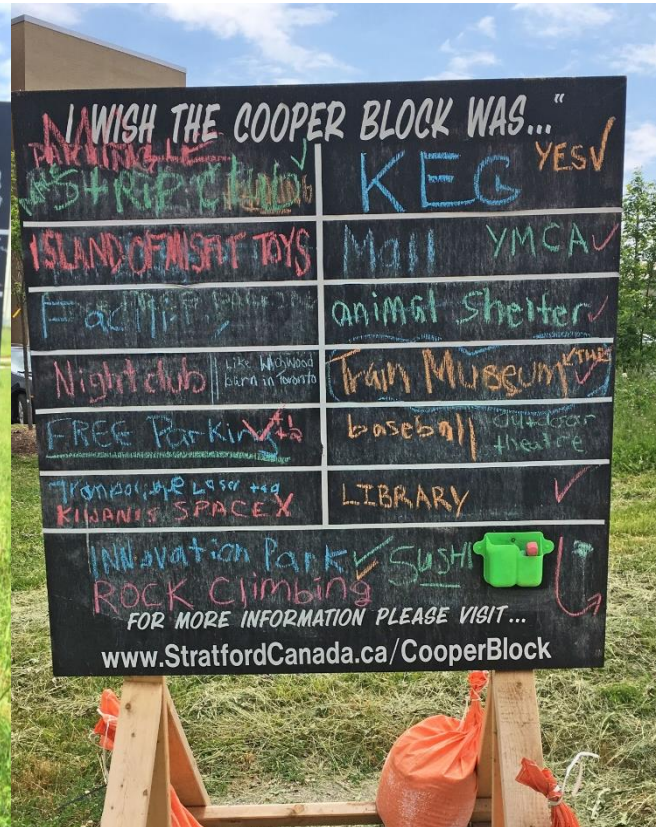 I WISH THE COOPER BLOCK WAS..."
STRIP CLUB
KEG YES
ISLAND OF MISFIT TOYS
Mall YMCA
animal Shelter
Nightclub Like Wychwood
barn in Toronto
Train Museum THIS
FREE Parking +2
baseball outdoor
theatre
Laser tag
KIWANIS SPACE X
LIBRARY
INNovation Park SUSHI
ROCK Climbing
FOR MORE INFORMATION PLEASE VISIT...
www.StratfordCanada.ca/CooperBlock